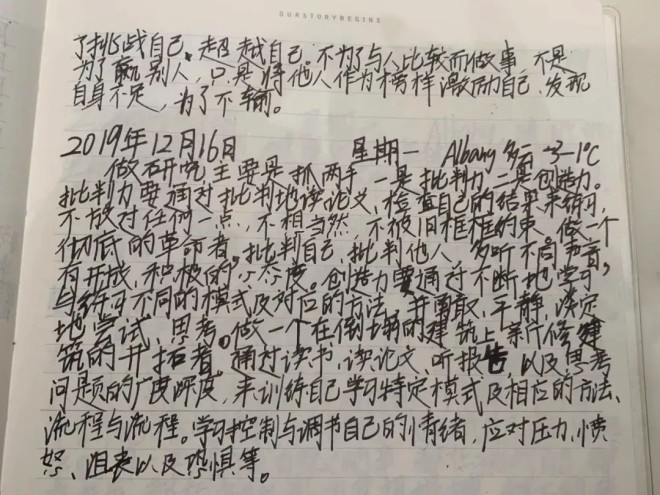 OURSTORYBEGINS
了挑战自己、超越自己。不为了与人比较而做事,不是
为了赢别人,只是将他人作为榜样激励自己,发现
自身不足,为了不输。
2019年12月16日 星期一 Albany 多云 -3~1°C
做研究主要是抓两手,一是批判力,二是创造力。
批判力要通过批判地读论文、检查自己的结果来练习,
不放过任何一点,不想当然,不被旧框框约束,做一个
彻底的革命者。批判自己,批判他人,多听不同声音,
有开放、积极的心态度。创造力要通过不断地学习,
与练习不同的模式及对应的方法,并勇敢、平静、淡定
地尝试、思考。做一个在倒塌的建筑上亲自修建
筑的开拓者。通过读书、读论文、听报告以及思考
问题的广度深度,来训练自己学习特定模式及相应的方法、
流程与流程。学习控制与调节自己的情绪,应对压力、愤
怒、沮丧以及恐惧等。